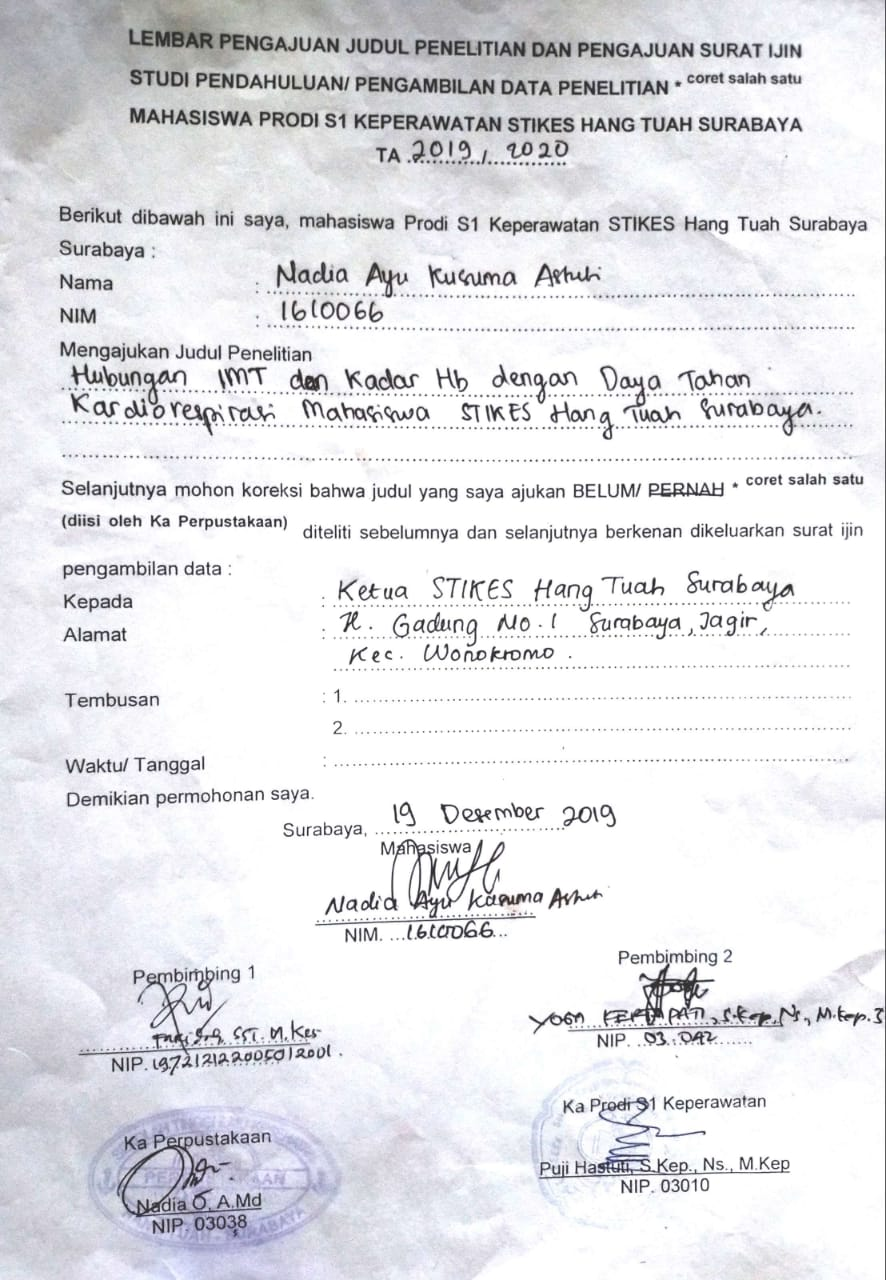 LEMBAR PENGAJUAN JUDUL PENELITIAN DAN PENGAJUAN SURAT IJIN
STUDI PENDAHULUAN/ PENGAMBILAN DATA PENELITIAN * coret salah satu
MAHASISWA PRODI S1 KEPERAWATAN STIKES HANG TUAH SURABAYA
TA 2019 / 2020
Berikut dibawah ini saya, mahasiswa Prodi S1 Keperawatan STIKES Hang Tuah Surabaya
Surabaya :
Nama : Nadia Ayu Kusuma Astuti
NIM : 1610066
Mengajukan Judul Penelitian
Hubungan IMT dan Kadar Hb dengan Daya Tahan
Kardiorespirasi Mahasiswa STIKES Hang Tuah Surabaya.
Selanjutnya mohon koreksi bahwa judul yang saya ajukan BELUM/ PERNAH * coret salah satu
(diisi oleh Ka Perpustakaan) diteliti sebelumnya dan selanjutnya berkenan dikeluarkan surat ijin
pengambilan data :
Kepada : Ketua STIKES Hang Tuah Surabaya
Alamat : Jl. Gadung No. 1 Surabaya, Jagir,
Kec. Wonokromo.
Tembusan : 1.
2.
Waktu/ Tanggal :
Demikian permohonan saya.
Surabaya, 19 Desember 2019
Mahasiswa
Nadia Ayu Kusuma Astuti
NIM. 1610066
Pembimbing 1 Pembimbing 2
SST. M.Kes
NIP. 197212122005012001.
S.Kep., Ns., M.Kep.
NIP. 03.042
Ka Perpustakaan
PERPUSTAKAAN
Nadia O, A.Md
NIP. 03038
SURABAYA
Ka Prodi S1 Keperawatan
Puji Hastuti, S.Kep., Ns., M.Kep
NIP. 03010